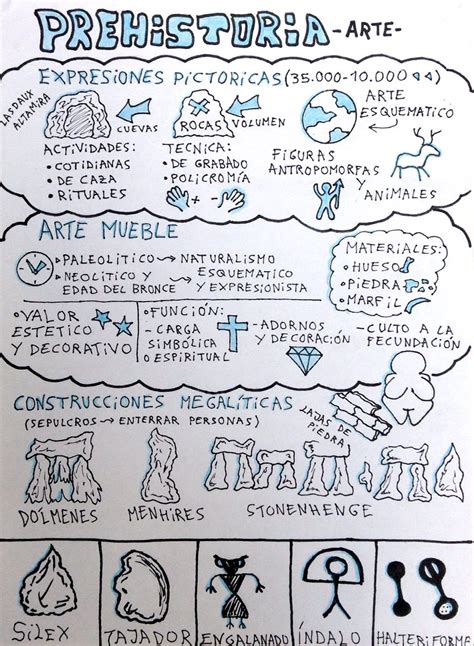 PREHISTORIA -ARTE-
EXPRESIONES PICTORICAS (35.000-10.000 )
LASDAUX
ALTAMIRA
CUEVAS
ROCAS
VOLUMEN
ARTE
ESQUEMATICO
ACTIVIDADES:
• COTIDIANAS
• DE CAZA
• RITUALES
TECNICA:
• DE GRABADO
• POLICROMÍA
FIGURAS
ANTROPOMORFAS
Y
ANIMALES
ARTE MUEBLE
• PALEOLITICO → NATURALISMO
• NEOLITICO Y
EDAD DEL BRONCE → ESQUEMATICO
Y EXPRESIONISTA
MATERIALES:
• HUESO
• PIEDRA
• MARFIL
• VALOR
ESTETICO
Y DECORATIVO
• FUNCIÓN:
- CARGA
SIMBÓLICA
O ESPIRITUAL
- ADORNOS
Y DECORACIÓN
- CULTO A LA
FECUNDACIÓN
CONSTRUCCIONES MEGALITICAS
(SEPULCROS → ENTERRAR PERSONAS)
LAJAS DE
PIEDRA
DOLMENES
MENHIRES
STONENHENGE
SILEX
TAJADOR
ENGALANADO
ÍNDALO
HALTERIFORME